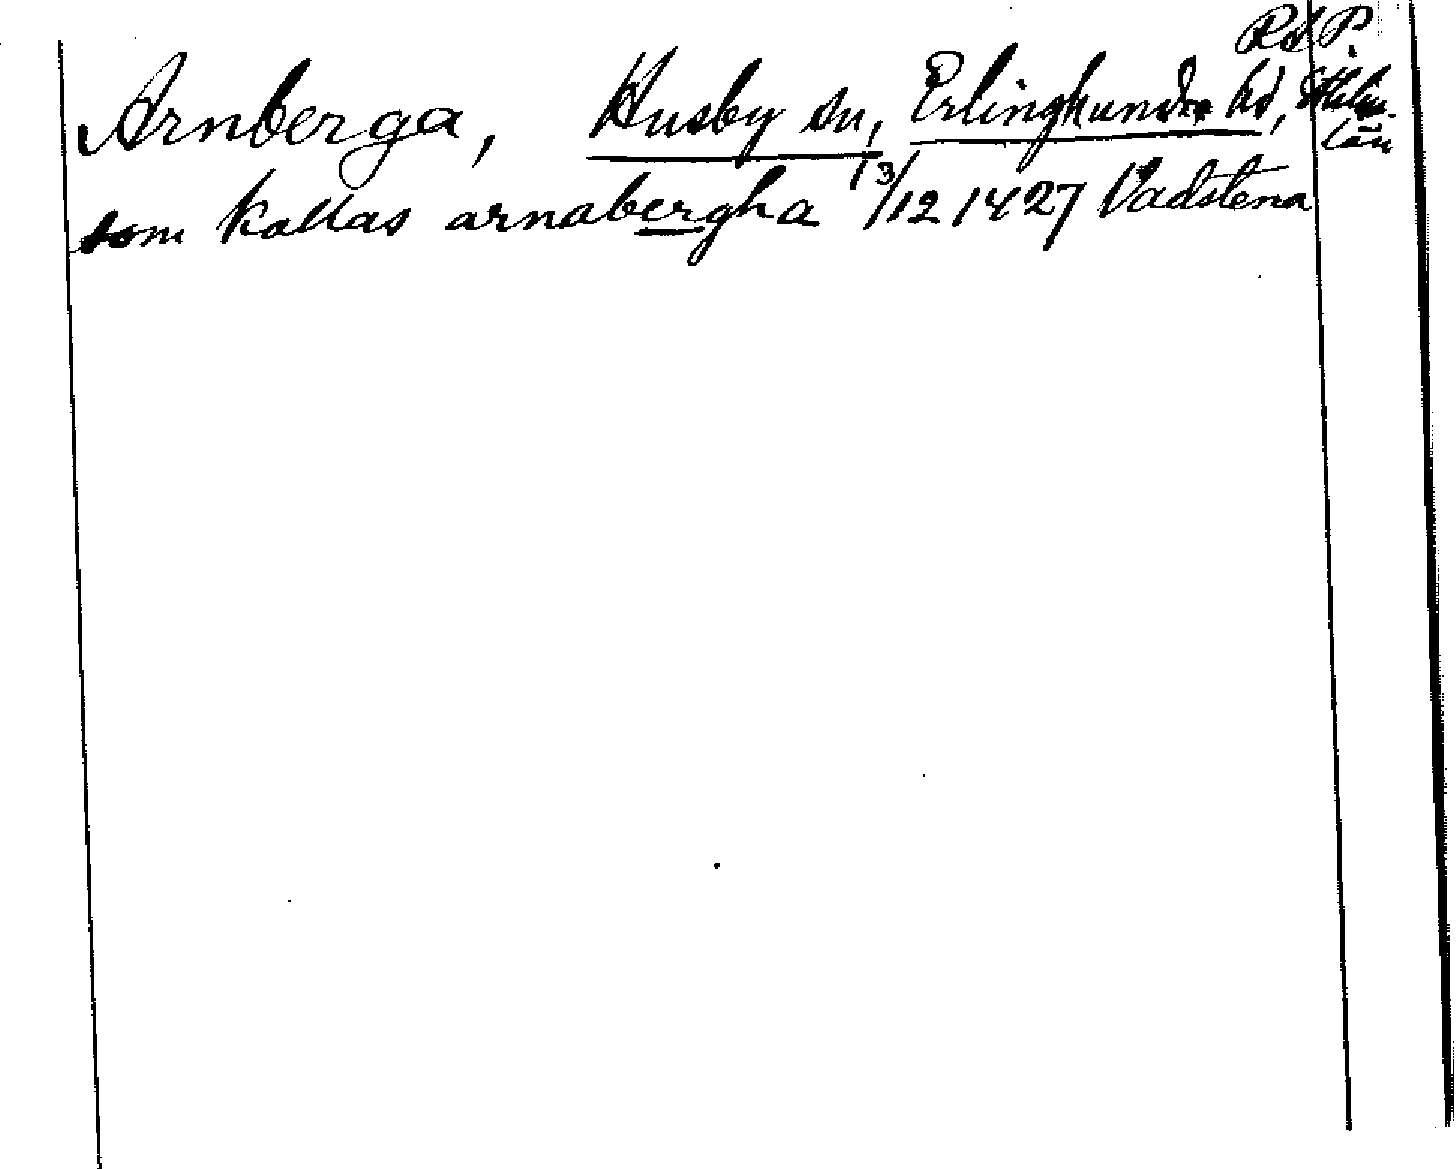 Rd P.
Arnberga, Husby sn, Erlinghundra hd, Sthlms
län
som kallas arnabergha 13/12 1427 Vadstena